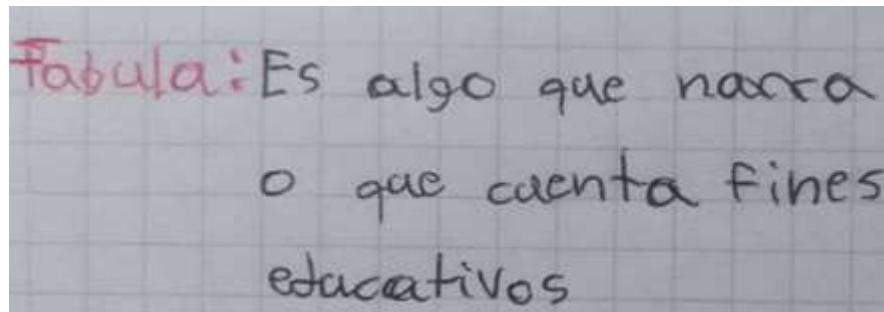 Fabula: Es algo que narra
o que cuenta fines
educativos